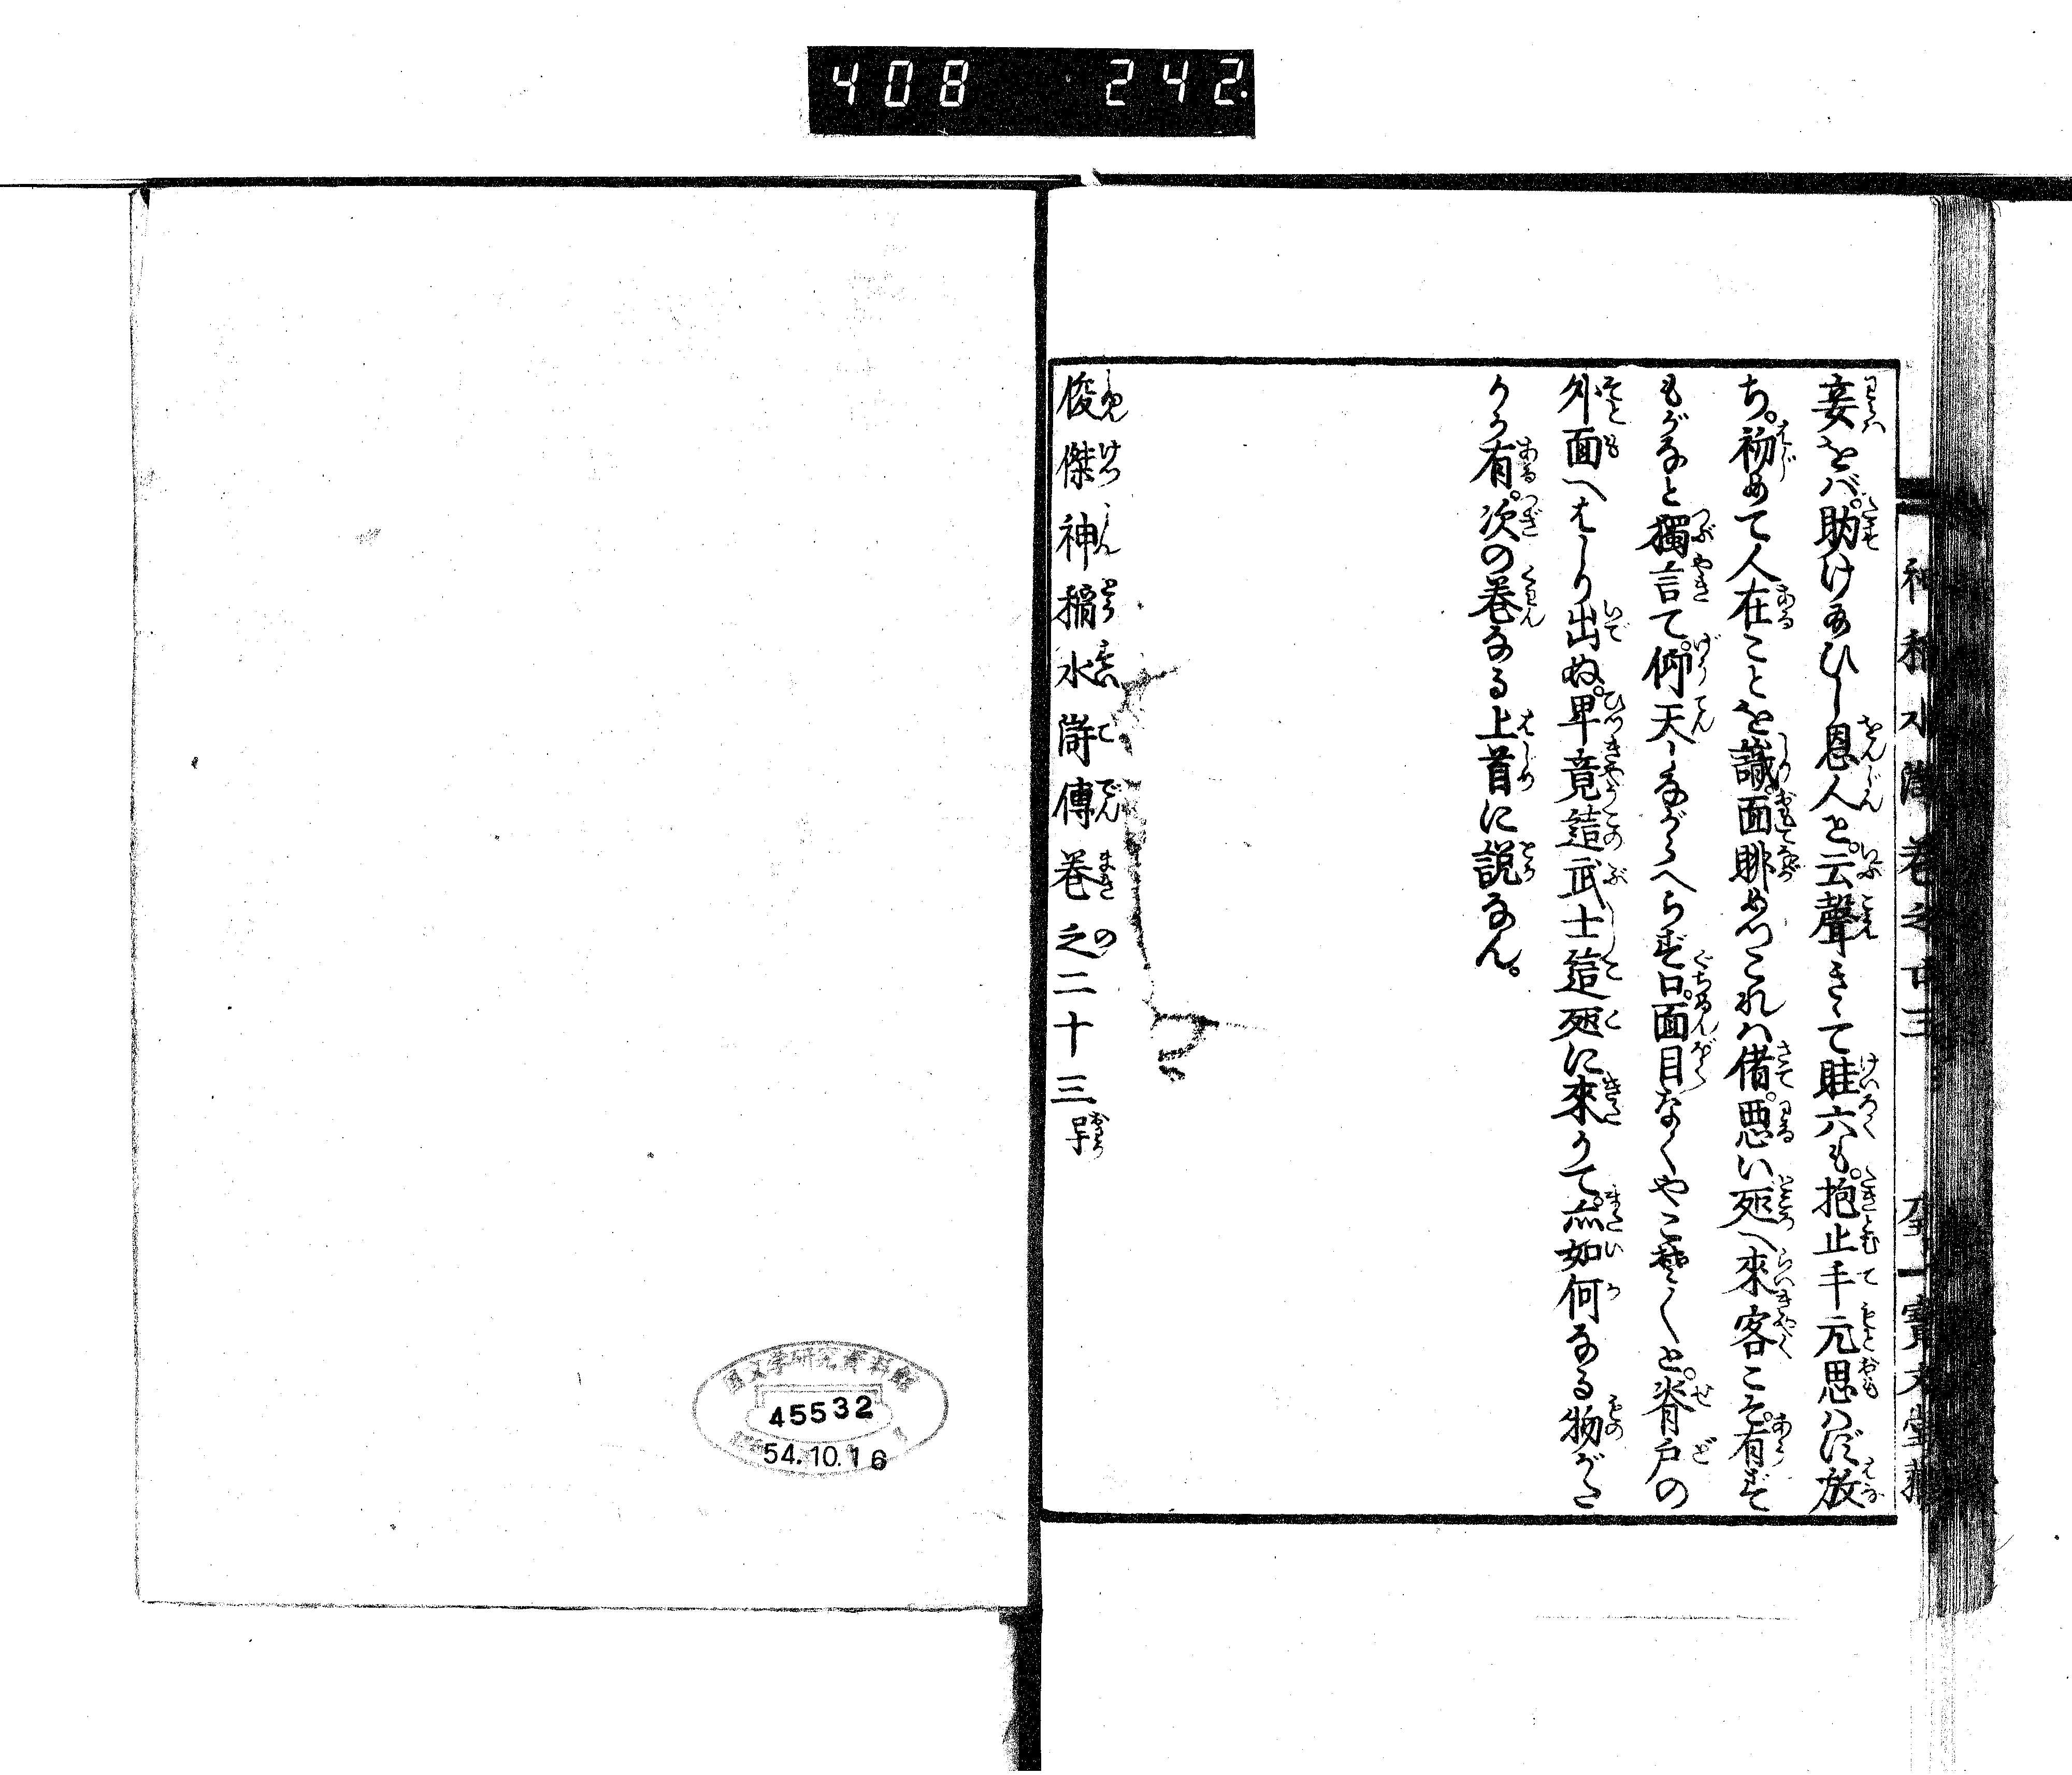 408 242
妾をバ。助け給ひし恩人と。云聲きゝて眭六も。抱止手元思ハず放
ち。初めて人在ことを識面眺めつこれハ偖。悪い处へ來客こそ。有ず
もがなと獨言て。仰天しながらへらず口。面目なくやこそ〳〵と。脊戸の
外面へはしり出ぬ。畢竟這武士這処に來りて。亦如何なる物がた
りか有。次の巻なる上首に説なん。
俊傑神稲水滸傳巻之二十三 畢
神稲水滸巻之廿三
寳文堂藏
国文学研究資料館
45532
54.10.16